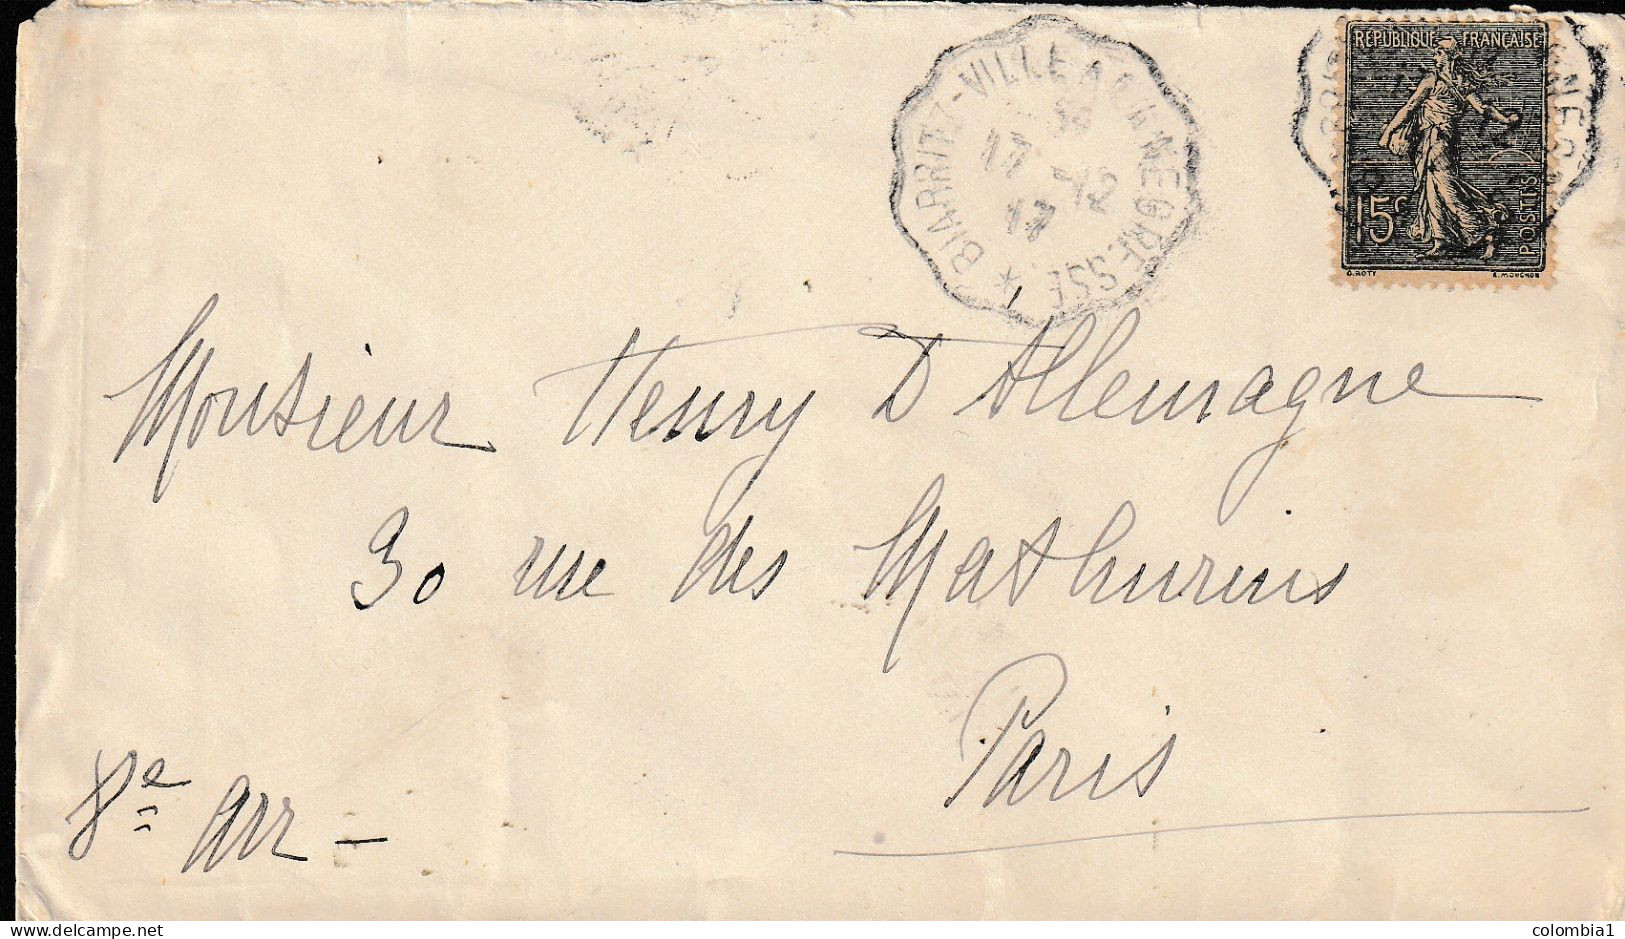 BIARRITZ-VILLE A LA NEGRESSE *
3E
17 -12
17
RÉPUBLIQUE FRANÇAISE
15c
POSTES
O. ROTY
E. MOUCHON
Monsieur Henry D'Allemagne
30 rue des Mathurins
Paris
8e arr -
delcampe.net
colombia1